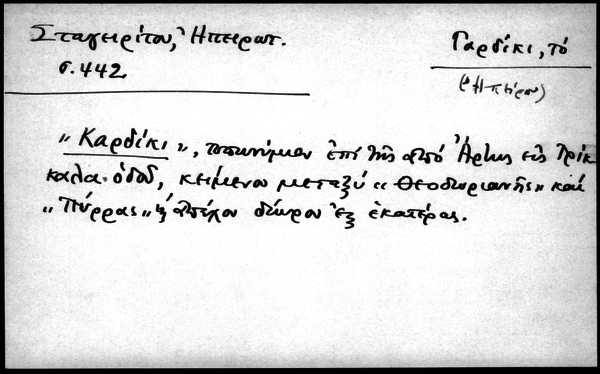 Σταγειρίτου, Ἠπειρωτ.
σ. 442
Γαρδίκι, τό
(Ἠπείρου)
"Καρδίκι", τοπωνύμιον ἐπί τῆς ἀπό Ἄρτης εἰς Τρίκ
καλα ὁδοῦ, κείμενον μεταξύ "Θεοδωριανῆς" καί
"Πύρρας" ἀπέχον δίωρον ἐξ ἑκατέρας.